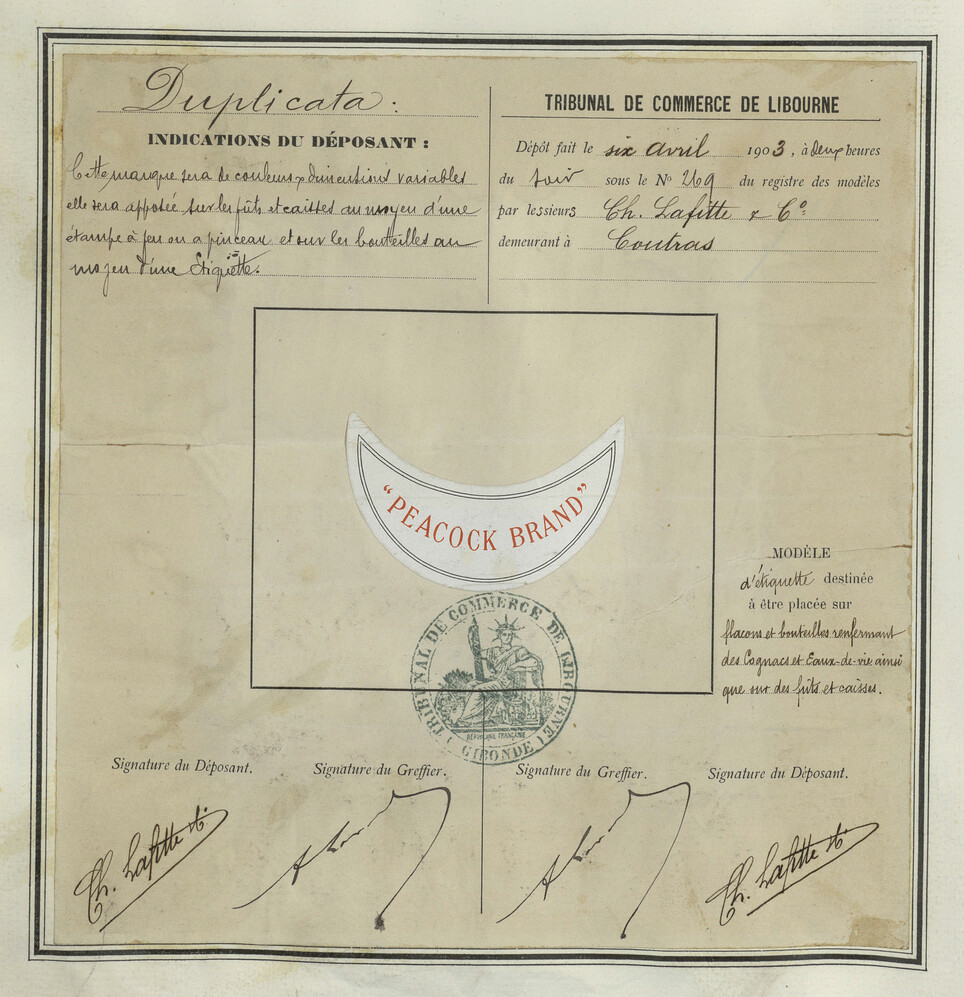 Duplicata :
INDICATIONS DU DÉPOSANT :
Cette marque sera de couleurs & dimentions variables
elle sera apposée sur les fûts et caisses au moyen d'une
étampe à feu ou a pinceau et sur les bouteilles au
moyen d'une Étiquette.
TRIBUNAL DE COMMERCE DE LIBOURNE
Dépôt fait le six avril 1903, à deux heures
du soir sous le No 269 du registre des modèles
par les sieurs Ch. Lafitte & Co.
demeurant à Coutras
"PEACOCK BRAND"
MODÈLE
d'étiquette destinée
à être placée sur
flacons et bouteilles renfermant
des Cognacs et Eaux-de-vie ainsi
que sur des fûts et caisses.
TRIBUNAL DE COMMERCE DE LIBOURNE
RÉPUBLIQUE FRANÇAISE
( GIRONDE )
Signature du Déposant.
Signature du Greffier.
Signature du Greffier.
Signature du Déposant.
Ch. Lafitte
Ch. Lafitte